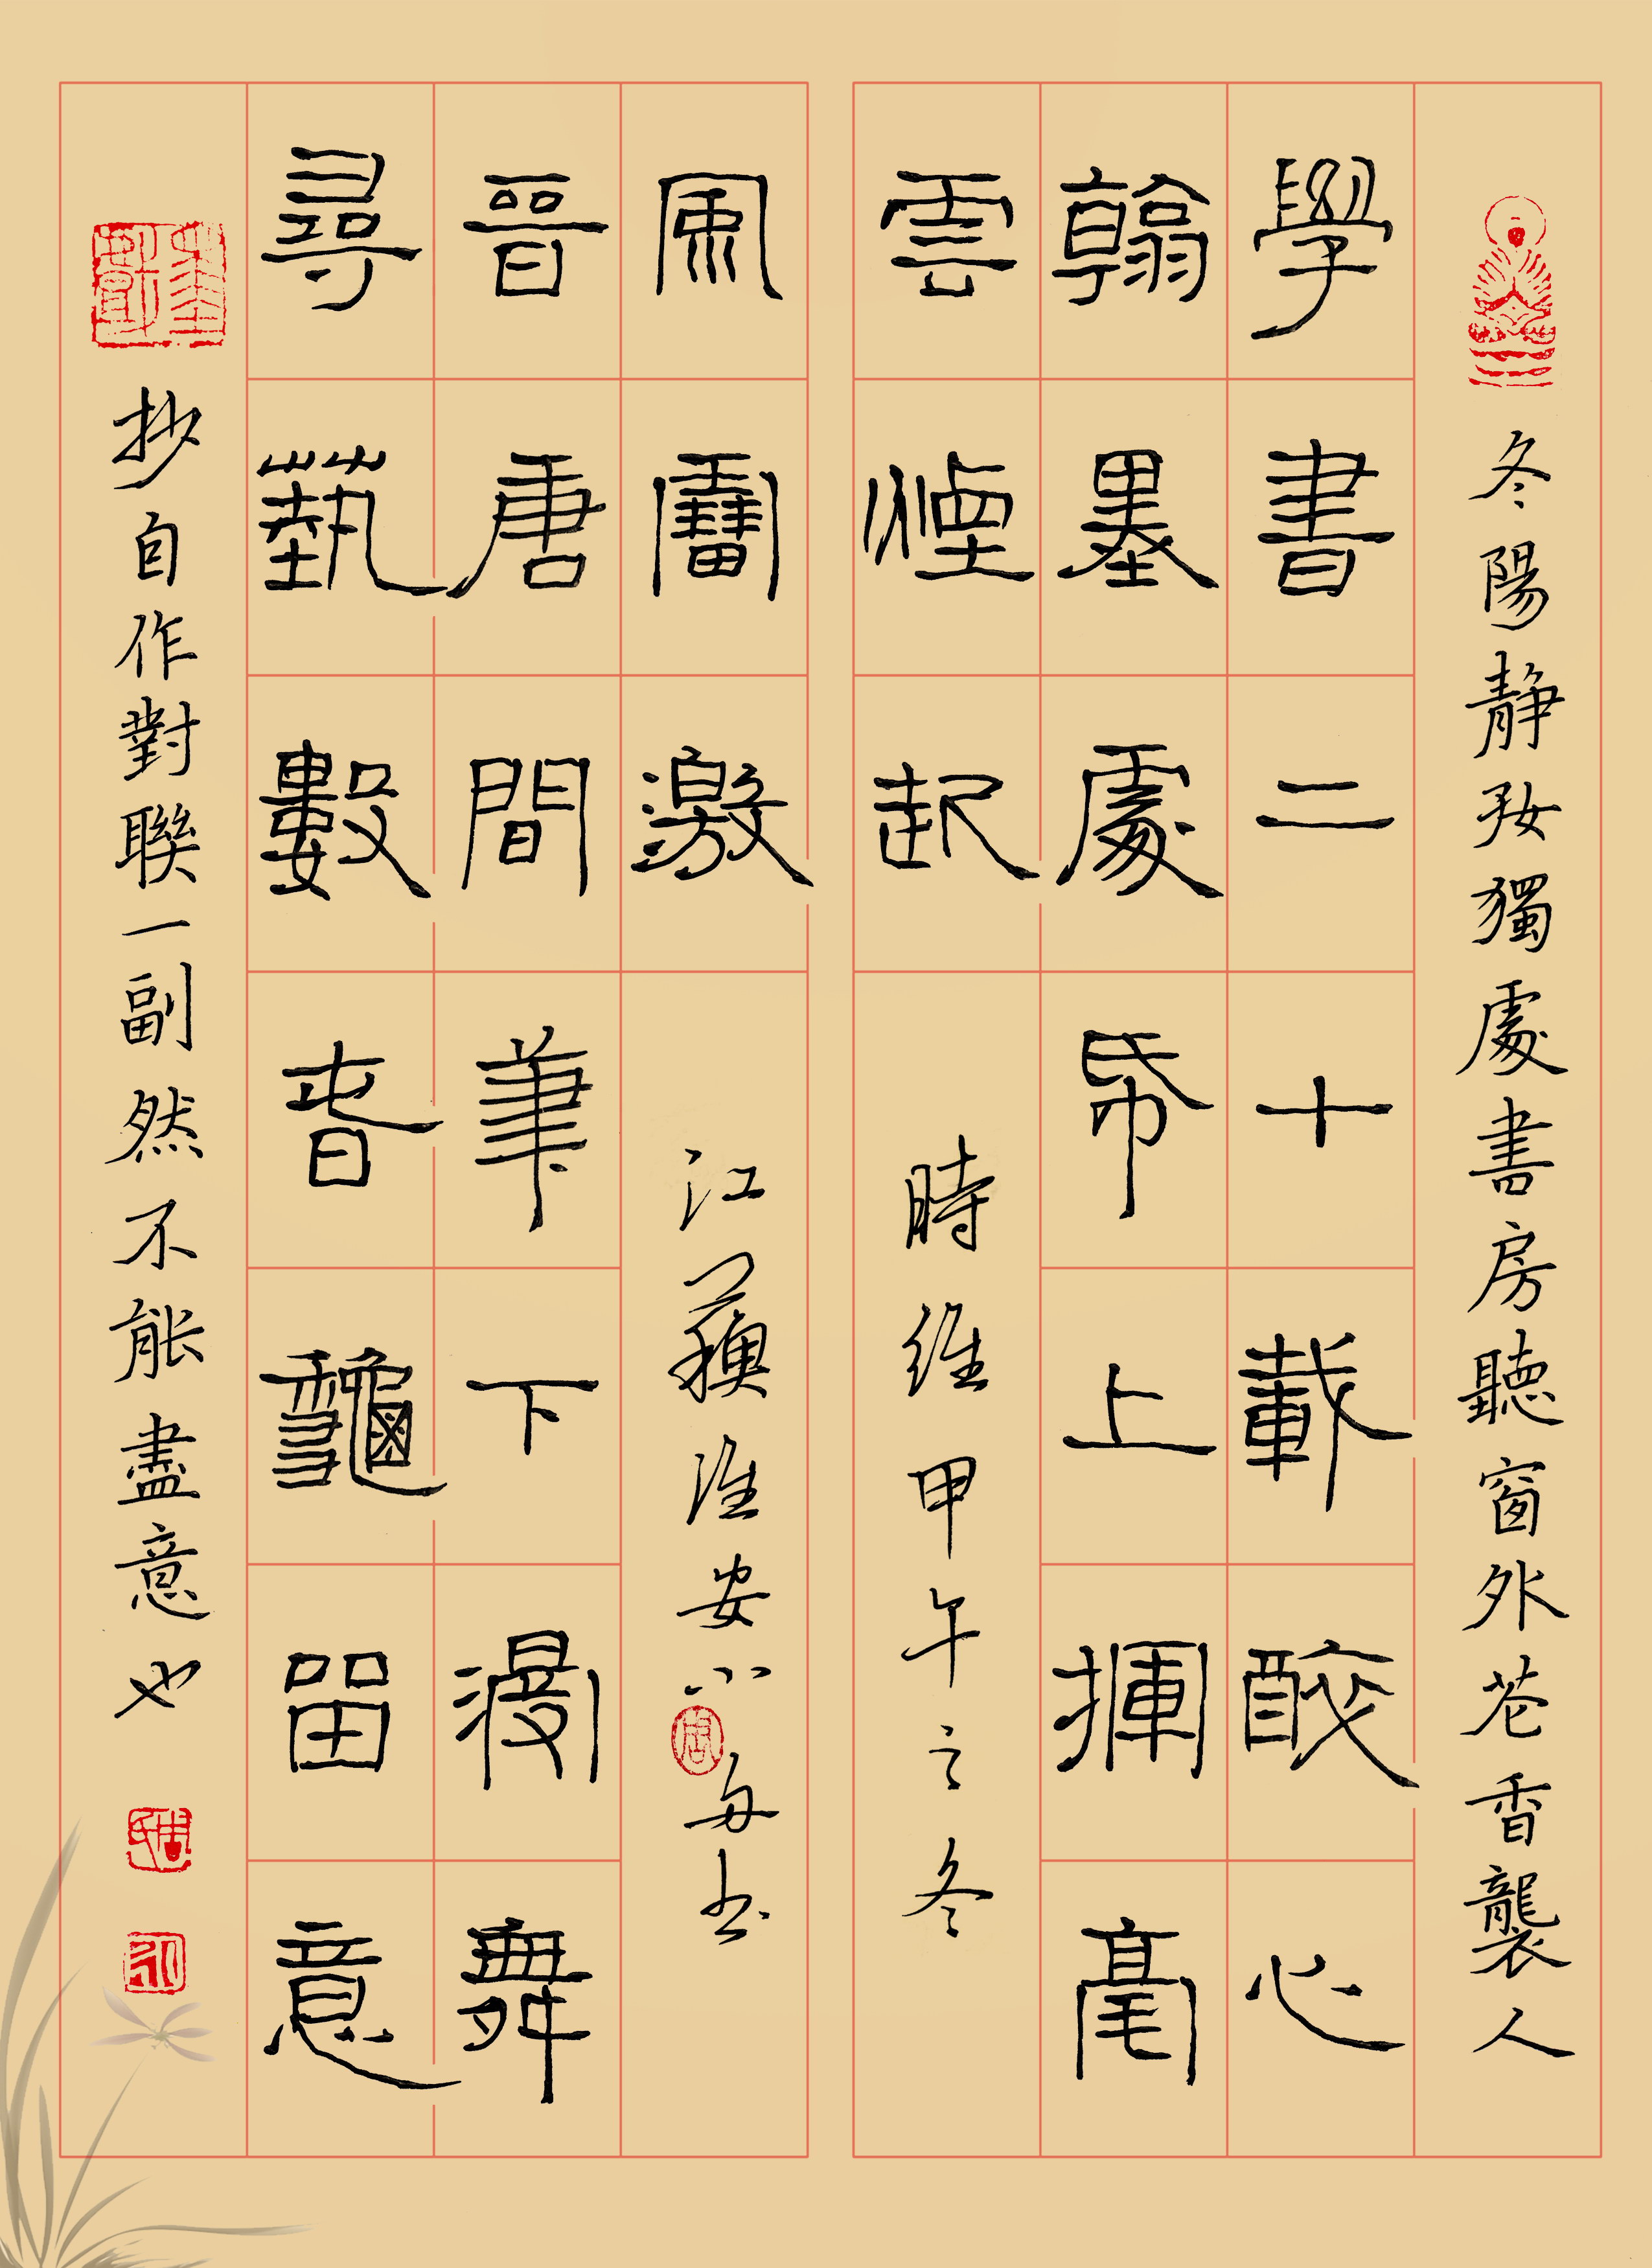 冬陽靜好獨處書房聽窗外花香襲人
學書二十載醉心
翰墨處帋上揮毫
雲煙起
時維甲午之冬
尋藝數春龝留意
晉唐間筆下漫舞
風雷激
江蘇淮安小书
抄自作對聯一副然不能盡意也